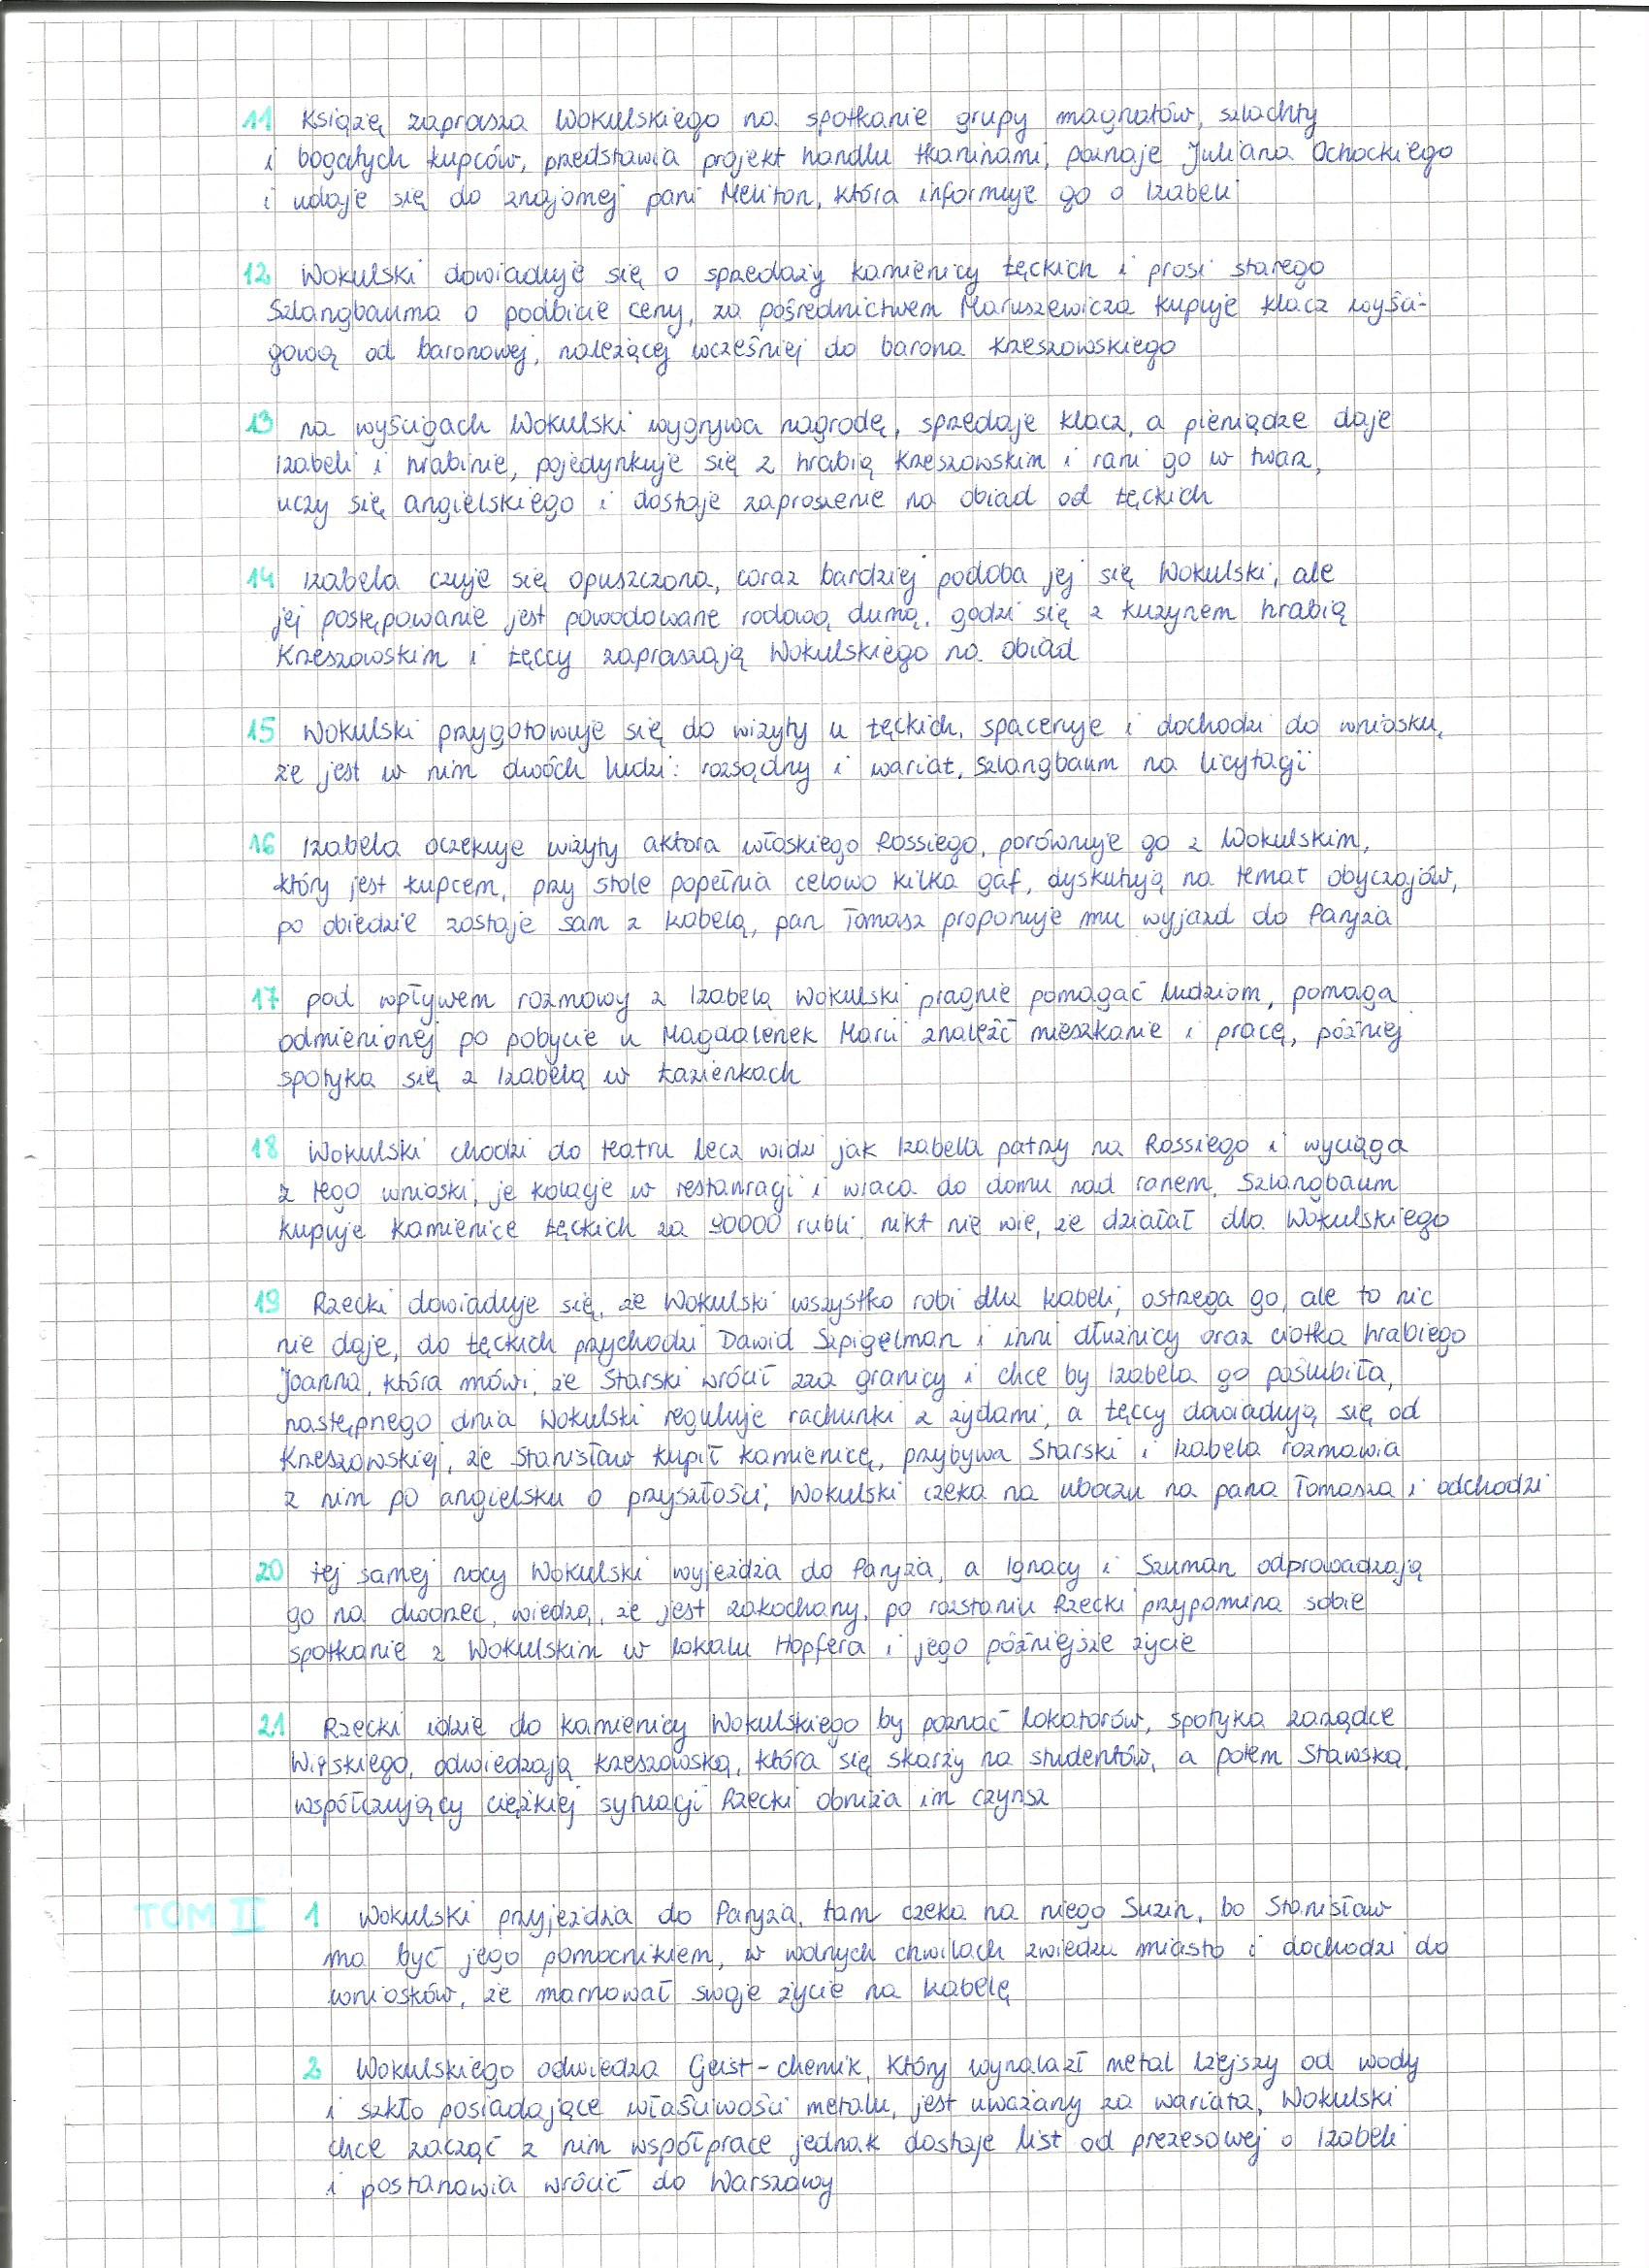 11 Książę zaprasza Wokulskiego na spotkanie grupy magnatów, szlachty
i bogatych kupców, przedstawia projekt handlu tkaninami, poznaje Juliana Ochockiego
i udaje się do znajomej pani Meliton, która informuje go o Izabeli
12 Wokulski dowiaduje się o sprzedaży kamienicy Łęckich i prosi starego
Szlangbauma o podbicie ceny, za pośrednictwem Maruszewicza kupuje klacz wyści-
gową od baronowej, należącej wcześniej do barona Krzeszowskiego
13 na wyścigach Wokulski wygrywa nagrodę, sprzedaje klacz, a pieniądze daje
Izabeli i hrabinie, pojedynkuje się z hrabią Krzeszowskim i rani go w twarz,
uczy się angielskiego i dostaje zaproszenie na obiad od Łęckich
14 Izabela czuje się opuszczona, coraz bardziej podoba jej się Wokulski, ale
jej postępowanie jest powodowane rodową dumą, godzi się z kuzynem hrabią
Krzeszowskim i Łęccy zapraszają Wokulskiego na obiad
15 Wokulski przygotowuje się do wizyty u Łęckich, spaceruje i dochodzi do wniosku,
że jest w nim dwóch ludzi: rozsądny i wariat, Szlangbaum na licytacji
16 Izabela oczekuje wizyty aktora włoskiego Rossiego, porównuje go z Wokulskim,
który jest kupcem, przy stole popełnia celowo kilka gaf, dyskutują na temat obyczajów,
po obiedzie zostaje sam z Izabelą, pan Tomasz proponuje mu wyjazd do Paryża
17 pod wpływem rozmowy z Izabelą Wokulski pragnie pomagać ludziom, pomaga
odmienionej po pobycie u Magdalenek Marii znaleźć mieszkanie i pracę, później
spotyka się z Izabelą w Łazienkach
18 Wokulski chodzi do teatru lecz widzi jak Izabela patrzy na Rossiego i wyciąga
z tego wnioski, je kolację w restauracji i wraca do domu nad ranem, Szlangbaum
kupuje kamienice Łęckich za 90000 rubli, nikt nie wie, że działał dla Wokulskiego
19 Rzecki dowiaduje się, że Wokulski wszystko robi dla Izabeli, ostrzega go, ale to nic
nie daje, do Łęckich przychodzi Dawid Szpigelman i inni dłużnicy oraz ciotka hrabiego
Joanna, która mówi, że Starski wrócił zza granicy i chce by Izabela go poślubiła,
następnego dnia Wokulski reguluje rachunki z żydami, a Łęccy dowiadują się od
Krzeszowskiej, że Stanisław kupił kamienicę, przybywa Starski i Izabela rozmawia
z nim po angielsku o przyszłości, Wokulski czeka na uboczu na pana Tomasza i odchodzi
20 tej samej nocy Wokulski wyjeżdża do Paryża, a Ignacy i Szuman odprowadzają
go na dworzec, wiedzą, że jest zakochany, po rozstaniu Rzecki przypomina sobie
spotkanie z Wokulskim w lokalu Hopfera i jego późniejsze życie
21 Rzecki idzie do kamienicy Wokulskiego by poznać lokatorów, spotyka zarządce
Wirskiego, odwiedzają Krzeszowską, która się skarży na studentów, a potem Stawską,
współczujący ciężkiej sytuacji Rzecki obniża im czynsz
TOM II 1 Wokulski przyjeżdża do Paryża, tam czeka na niego Suzin, bo Stanisław
ma być jego pomocnikiem, w wolnych chwilach zwiedza miasto i dochodzi do
wniosków, że marnował swoje życie na Izabelę
2 Wokulskiego odwiedza Geist - chemik, który wynalazł metal lżejszy od wody
i szkło posiadające właściwości metalu, jest uważany za wariata, Wokulski
chce zacząć z nim współprace jednak dostaje list od prezesowej o Izabeli
i postanawia wrócić do Warszawy